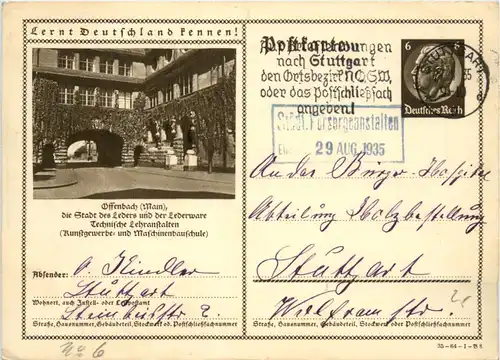 Lernt Deutschland kennen!
Offenbach (Main),
die Stadt des Leders und der Lederware
Technische Lehranstalten
(Kunstgewerbe- und Maschinenbauschule)
Absender: A. Kindler
Stuttgart
Wohnort, auch Zustell- oder Leitpostamt
Steinbeisstr. 2.
Straße, Hausnummer, Gebäudeteil, Stockwerk od. Postschließfachnummer
No 6
Postkarte
nach Stuttgart
den Ortsbezirk N,O,S,W,
oder das Postschließfach
angeben!
STUTTGART
6 6
Deutsches Reich
Städt. Fürsorgeanstalten
29 AUG. 1935
An das Bürger-Hospital
Abteilung Holzbestellung
Stuttgart
Wolframstr.
Straße, Hausnummer, Gebäudeteil, Stockwerk oder Postschließfachnummer
35-64-1-B8